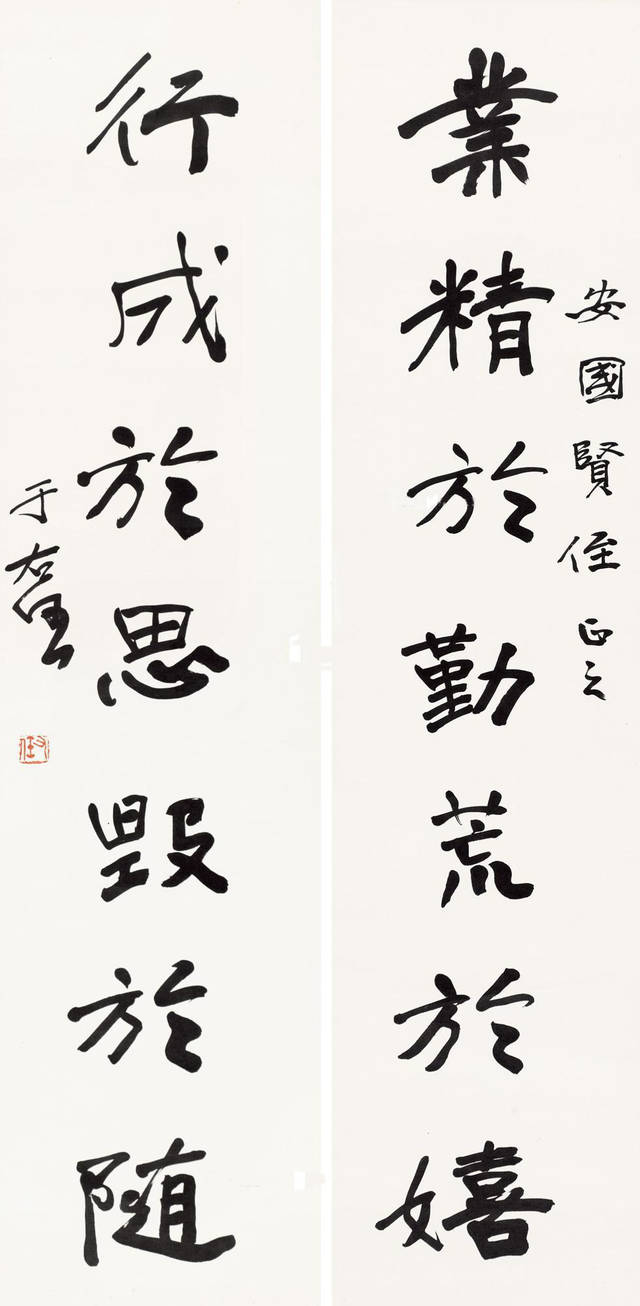 業精於勤荒於嬉
安國賢侄正之
行成於思毀於随
于右任